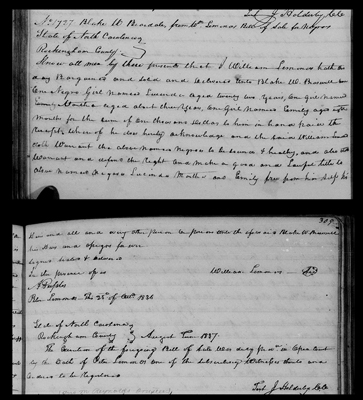 Test J Holderby Clk
No 1727 Blake W Braswell from Wm Lemmons Bill of Sale for Negroes
State of North Carolina
Rockingham County
Know all men by these presents that I William Lemmons hath this
day Bargained and Sold and delivered unto Blake W Braswell
One Negro Girl Named Lucinda Aged twenty two Years, One Girl Named
Martha aged about three Years, One Girl Named Emily aged eight
Month for the Sum of One thousand Dollars to him in hand paid the
Receipt whereof he doth hereby acknowledge and the said William Lemmons
doth Warrant the above Named Negroes to be sound & healthy, and also doth
Warrant and defend the Right and make a good and Lawful title to
above Named Negroes Lucinda Martha and Emily free from him self his
305
heirs and all and every other person or persons unto the aforesaid Blake W Braswell
his heirs and assigns for ever
Signed Sealed & delivered
In the presence of us William Lemmons Seal
Peter Lemmons The 25th of Octr 1836
State of North Carolina
Rockingham County August Term 1837
The Execution of the foregoing Bill of Sale was duly proven in Open Court
by the Oath of Peter Lemmons One of the Subscribing Witnesses thereto and
Ordered to be Registered
Test J Holderby Clk